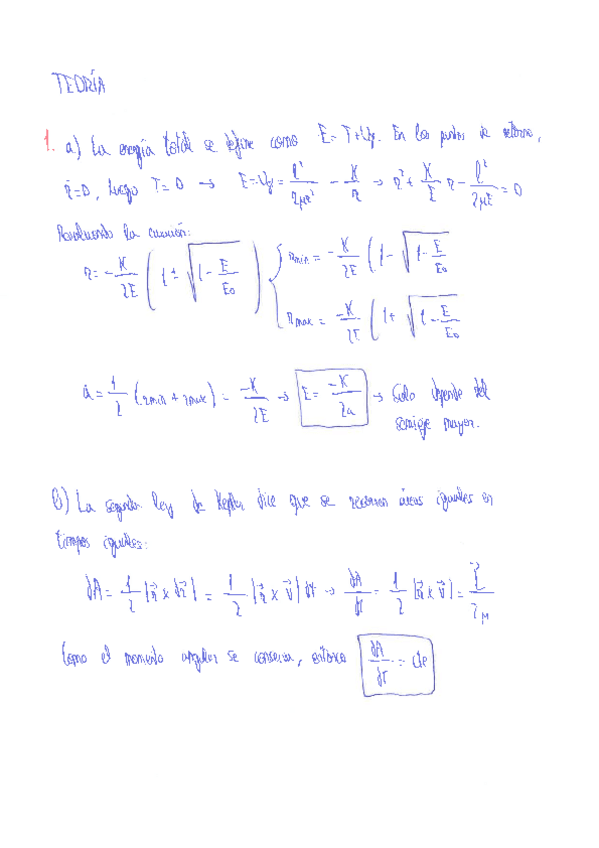 TEORÍA
1. a) La energía total se define como E = T + Uef. En los puntos de retorno,
ṙ=0, luego T=0 → E=Uef = l²/2μr² - K/r → r² + K/E r - l²/2μE = 0
Resolviendo la ecuación:
r = -K/2E (1 ± √(1 - E/E₀)) { rmin = -K/2E (1 - √(1 - E/E₀)
rmax = -K/2E (1 + √(1 - E/E₀)
a = 1/2 (rmin + rmax) = -K/2E → E = -K/2a → Solo depende del
semieje mayor.
b) La segunda ley de Kepler dice que se recorren áreas iguales en
tiempos iguales:
dA = 1/2 |r⃗ x dr⃗| = 1/2 |r⃗ x v⃗| dt → dA/dt = 1/2 |r⃗ x v⃗| = L⃗/2μ
Como el momento angular se conserva, entonces dA/dt = cte